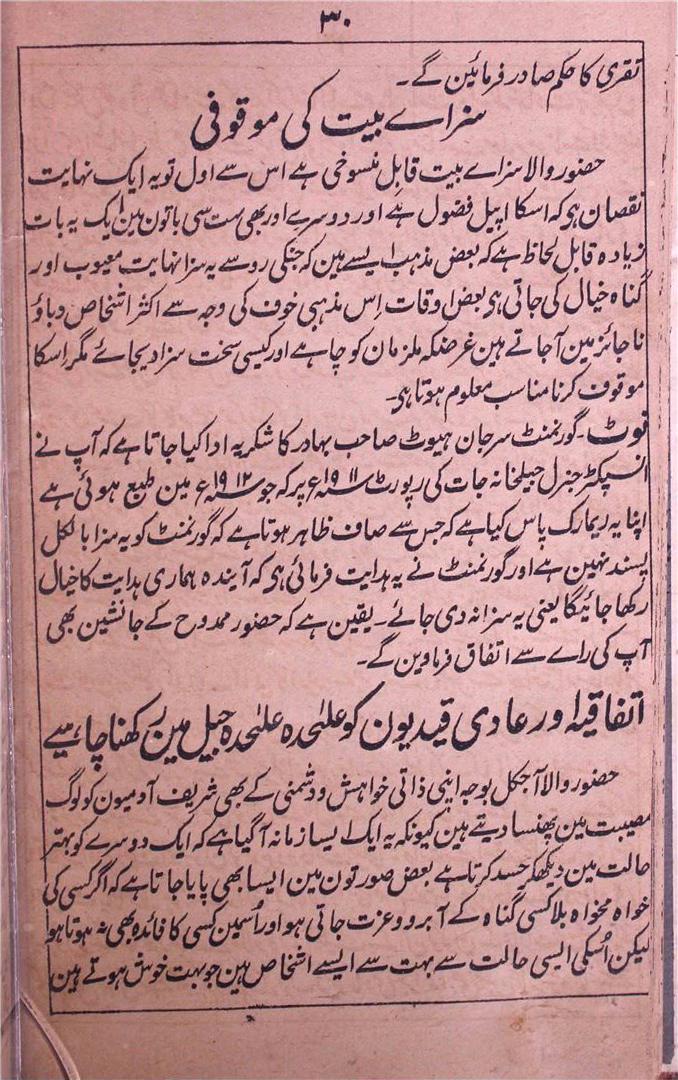 ۳۰
تقرری کا حکم صادر فرمائین گے۔
سزاے بیت کی موقوفی
حضور والا سزاے بیت قابل منسوخی ہے اس سے اول تو یہ ایک نہایت
نقصان ہی کہ اسکا اپیل فضول ہے اور دوسرے اور بھی بہت سی باتون مین ایک یہ بات
زیادہ قابل لحاظ ہے کہ بعض مذہب ایسے ہین کہ جنکی روسے یہ سزا نہایت معیوب اور
گناہ خیال کی جاتی ہی بعض اوقات اِس مذہبی خوف کی وجہ سے اکثر اشخاص دباؤ
ناجائز مین آجاتے ہین غرضکہ ملزمان کو چاہے اور کیسی سخت سزا دیجائے مگر اسکا
موقوف کرنا مناسب معلوم ہوتا ہی۔
نوٹ۔ گورنمنٹ سرجان ہیوٹ صاحب بہادر کا شکریہ ادا کیا جاتا ہے کہ آپ نے
انسپکٹر جنرل جیلخانہ جات کی رپورٹ سنہ ۱۹۱۱ء پر کہ جو سنہ ۱۹۱۲ء مین طبع ہوئی ہے
اپنا یہ ریمارک پاس کیا ہے کہ جس سے صاف ظاہر ہوتا ہے کہ گورنمنٹ کو یہ سزا بالکل
پسند نہین ہے اور گورنمنٹ نے یہ ہدایت فرمائی ہی کہ آیندہ ہماری ہدایت کا خیال
رکھا جائیگا یعنی یہ سزا نہ دی جائے۔ یقین ہے کہ حضور ممدوح کے جانشین بھی
آپ کی راے سے اتفاق فرماوین گے۔
اتفاقیہ اور عادی قیدیون کو علٰحدہ علٰحدہ جیل مین رکھنا چاہیے
حضور والا آجکل بوجہ اپنی ذاتی خواہش و دشمنی کے بھی شریف آدمیون کو لوگ
مصیبت مین پھنسا دیتے ہین کیونکہ یہ ایک ایسا زمانہ آگیا ہے کہ ایک دوسرے کو بہتر
حالت مین دیکھکر حسد کرتا ہے بعض صورتون مین ایسا بھی پایا جاتا ہے کہ اگر کسی کی
خواہ مخواہ بلا کسی گناہ کے آبرو و عزت جاتی ہو اور اُسمین کسی کا فائدہ بھی نہ ہوتا ہو
لیکن اُسکی ایسی حالت سے بہت سے ایسے اشخاص ہین جو بہت خوش ہوتے ہین